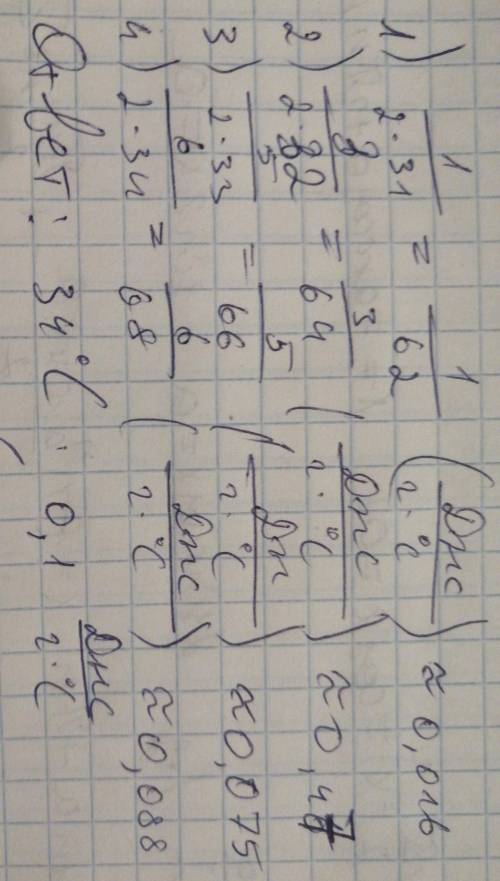 1) 1/(2·31) = 1/62 (Дж/(г·°C)) ≈ 0,016
2) 3/(2·32) = 3/64 (Дж/(г·°C)) ≈ 0,47
3) 5/(2·33) = 5/66 (Дж/(г·°C)) ≈ 0,075
4) 6/(2·34) = 6/68 (Дж/(г·°C)) ≈ 0,088
Ответ: 34°C; 0,1 Дж/(г·°C)